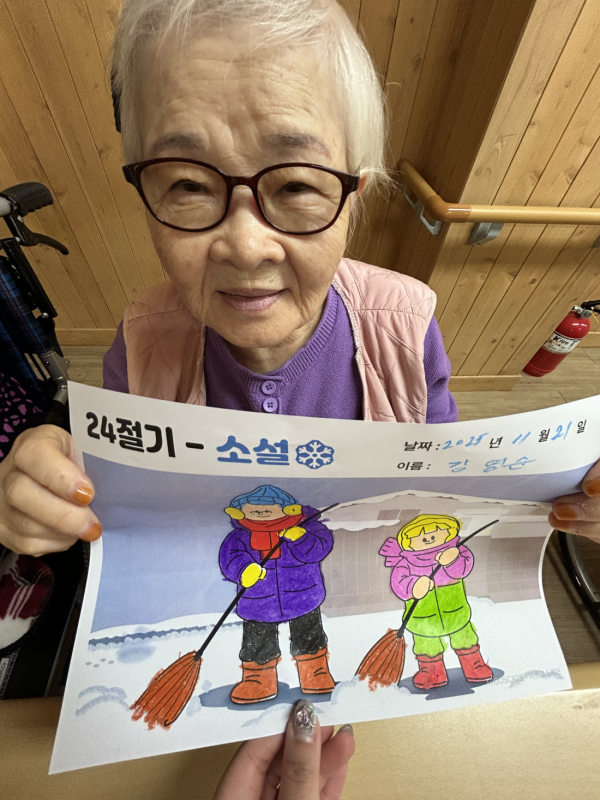 24절기 - 소설
날짜 : 2025 년 11 월 21 일
이름 : 김